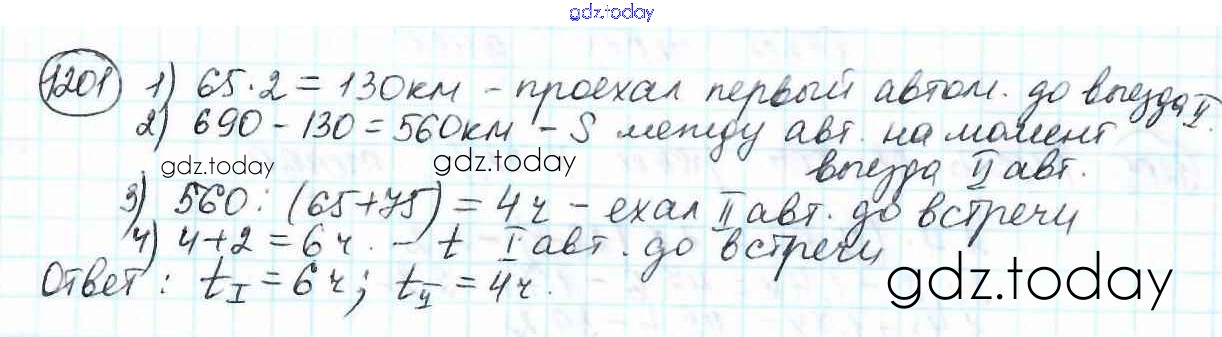 gdz.today
1201 1) 65·2=130км – проехал первый автом. до выезда II.
2) 690-130=560км – S между авт. на момент
gdz.today gdz.today выезда II авт.
3) 560:(65+75)=4ч – ехал II авт. до встречи
4) 4+2=6ч. – t I авт. до встречи
Ответ: tI=6ч; tII=4ч.
gdz.today